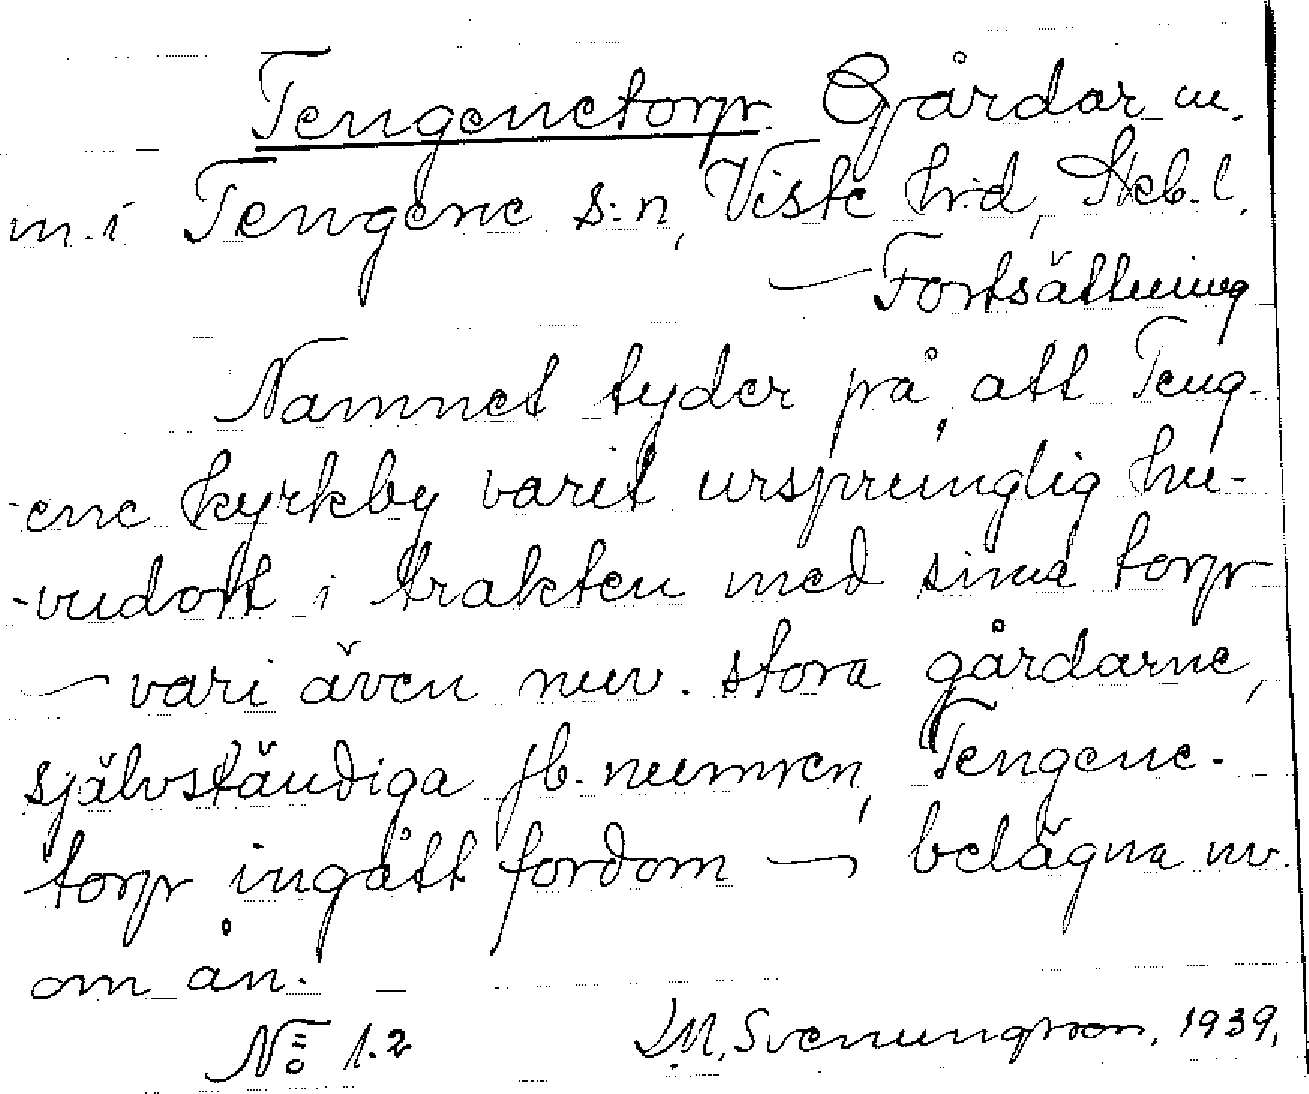 Tengenetorp. Gårdar m.
m. i Tengene s:n, Viste h:d, Skb. l.
— Fortsättning
Namnet tyder på, att Teng-
-ene kyrkby varit ursprunglig hu-
-vudort i trakten med sina torp
— vari även nuv. stora gårdarne,
självständiga jb. numren, Tengene-
torp ingått fordom —, belägna nv.
om ån. —
No 1.2 D.M. Svenungsson, 1939,